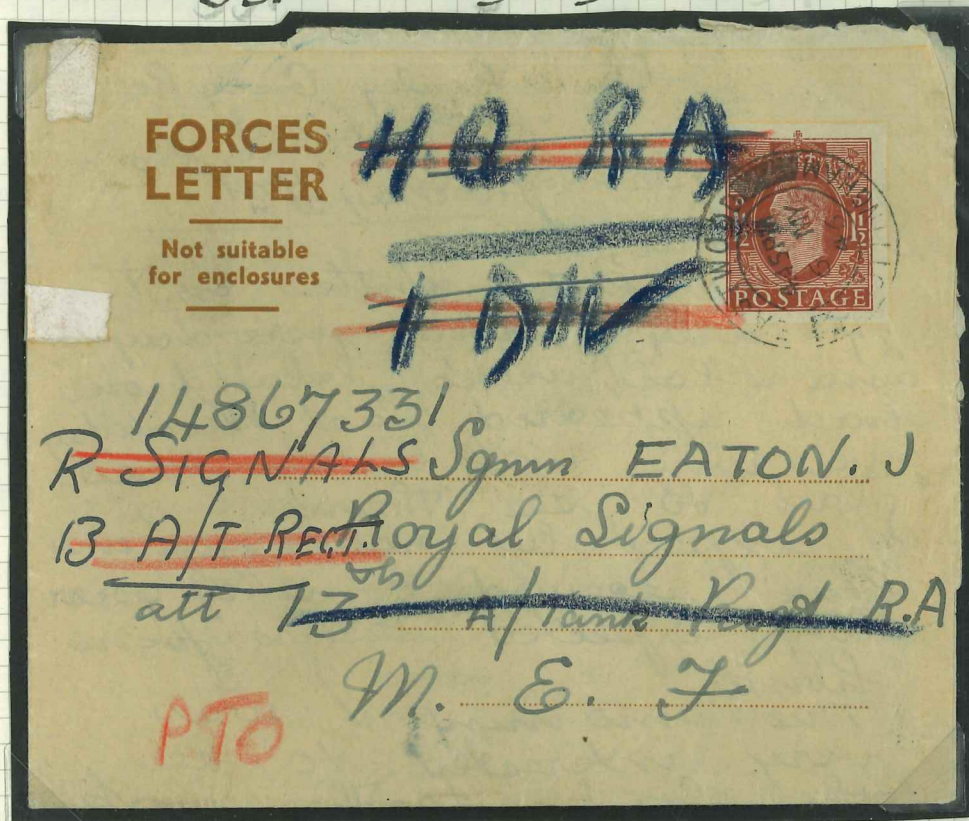 FORCES
LETTER
Not suitable
for enclosures
H Q R A
1 DIV
POSTAGE
1½ 1½
14867331
R SIGNALS Sgmn EATON. J
13 A/T REGT. Royal Signals
att 13th A/Tank Regt R.A
M. E. F
PTO